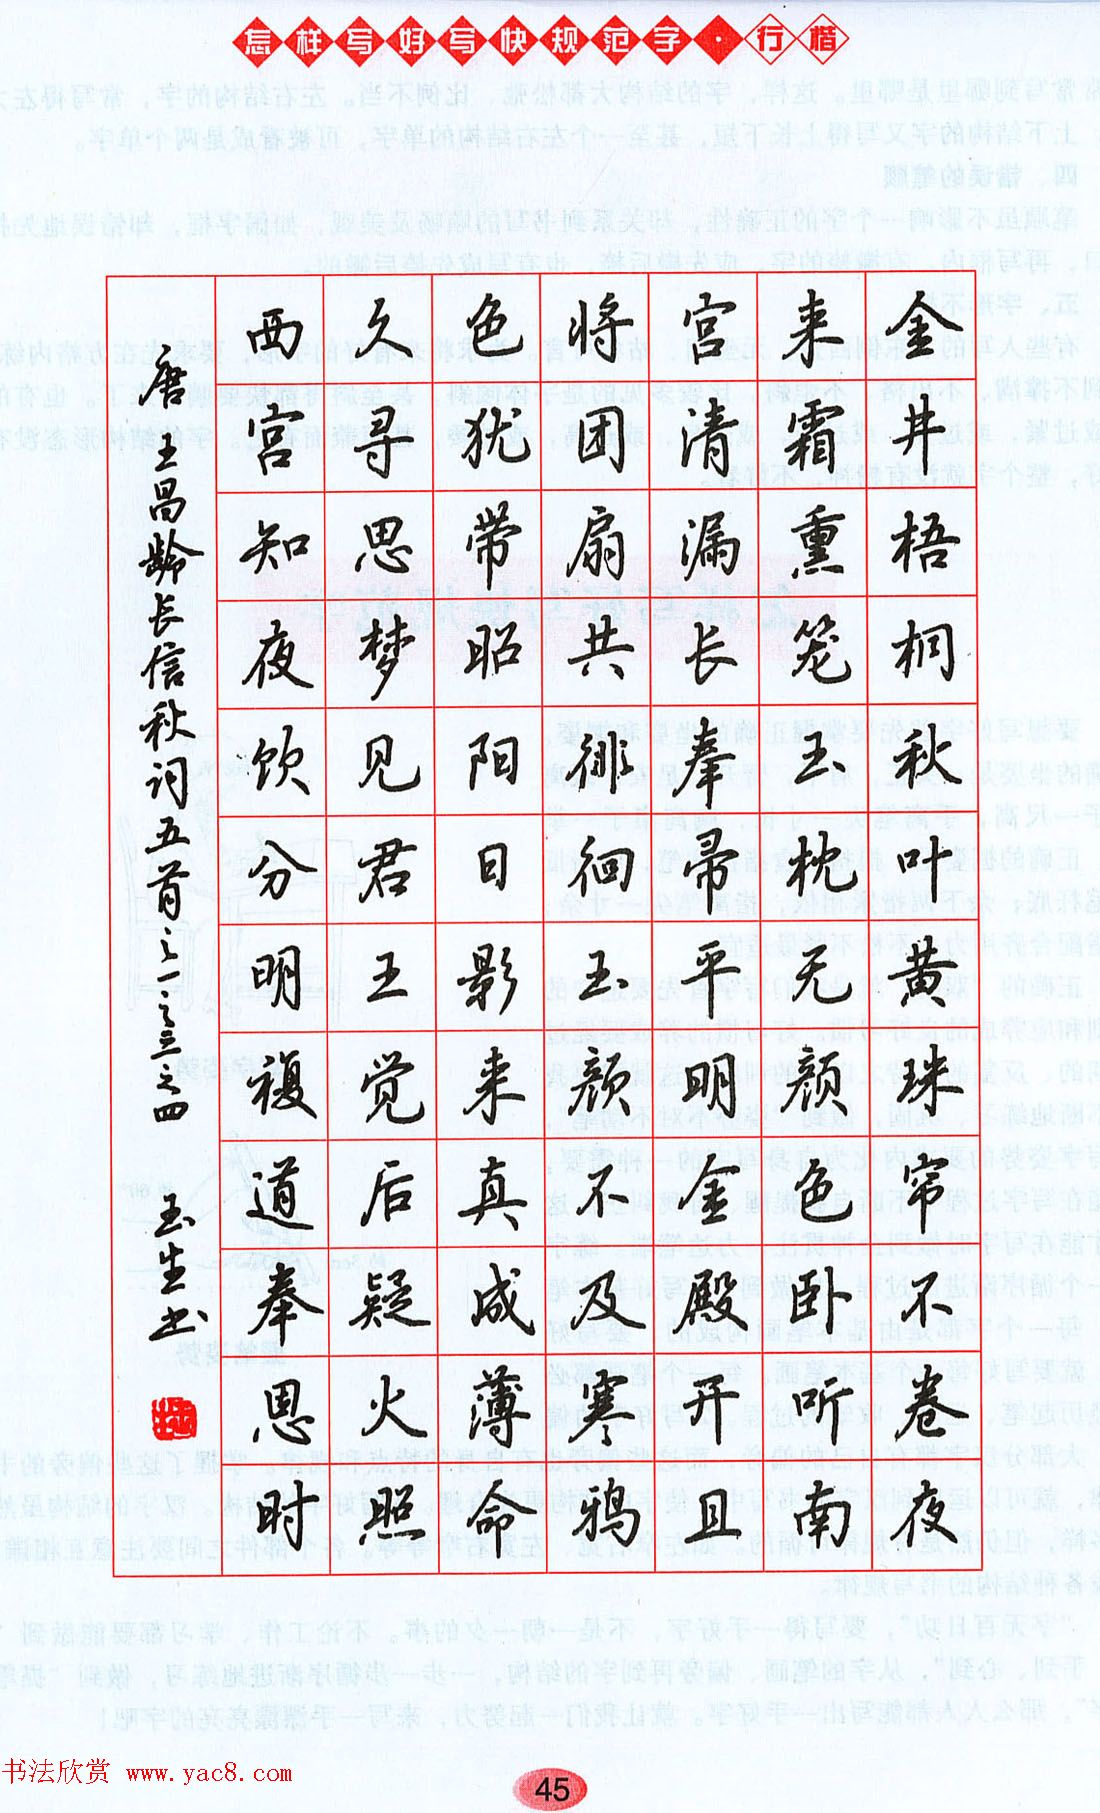 怎样写好写快规范字·行楷
金井梧桐秋叶黄珠帘不卷夜
来霜熏笼玉枕无颜色卧听南
宫清漏长奉帚平明金殿开且
将团扇共徘徊玉颜不及寒鸦
色犹带昭阳日影来真成薄命
久寻思梦见君王觉后疑火照
西宫知夜饮分明複道奉恩时
唐王昌龄长信秋词五首之一之三之四 玉生书
书法欣赏 www.yac8.com
45